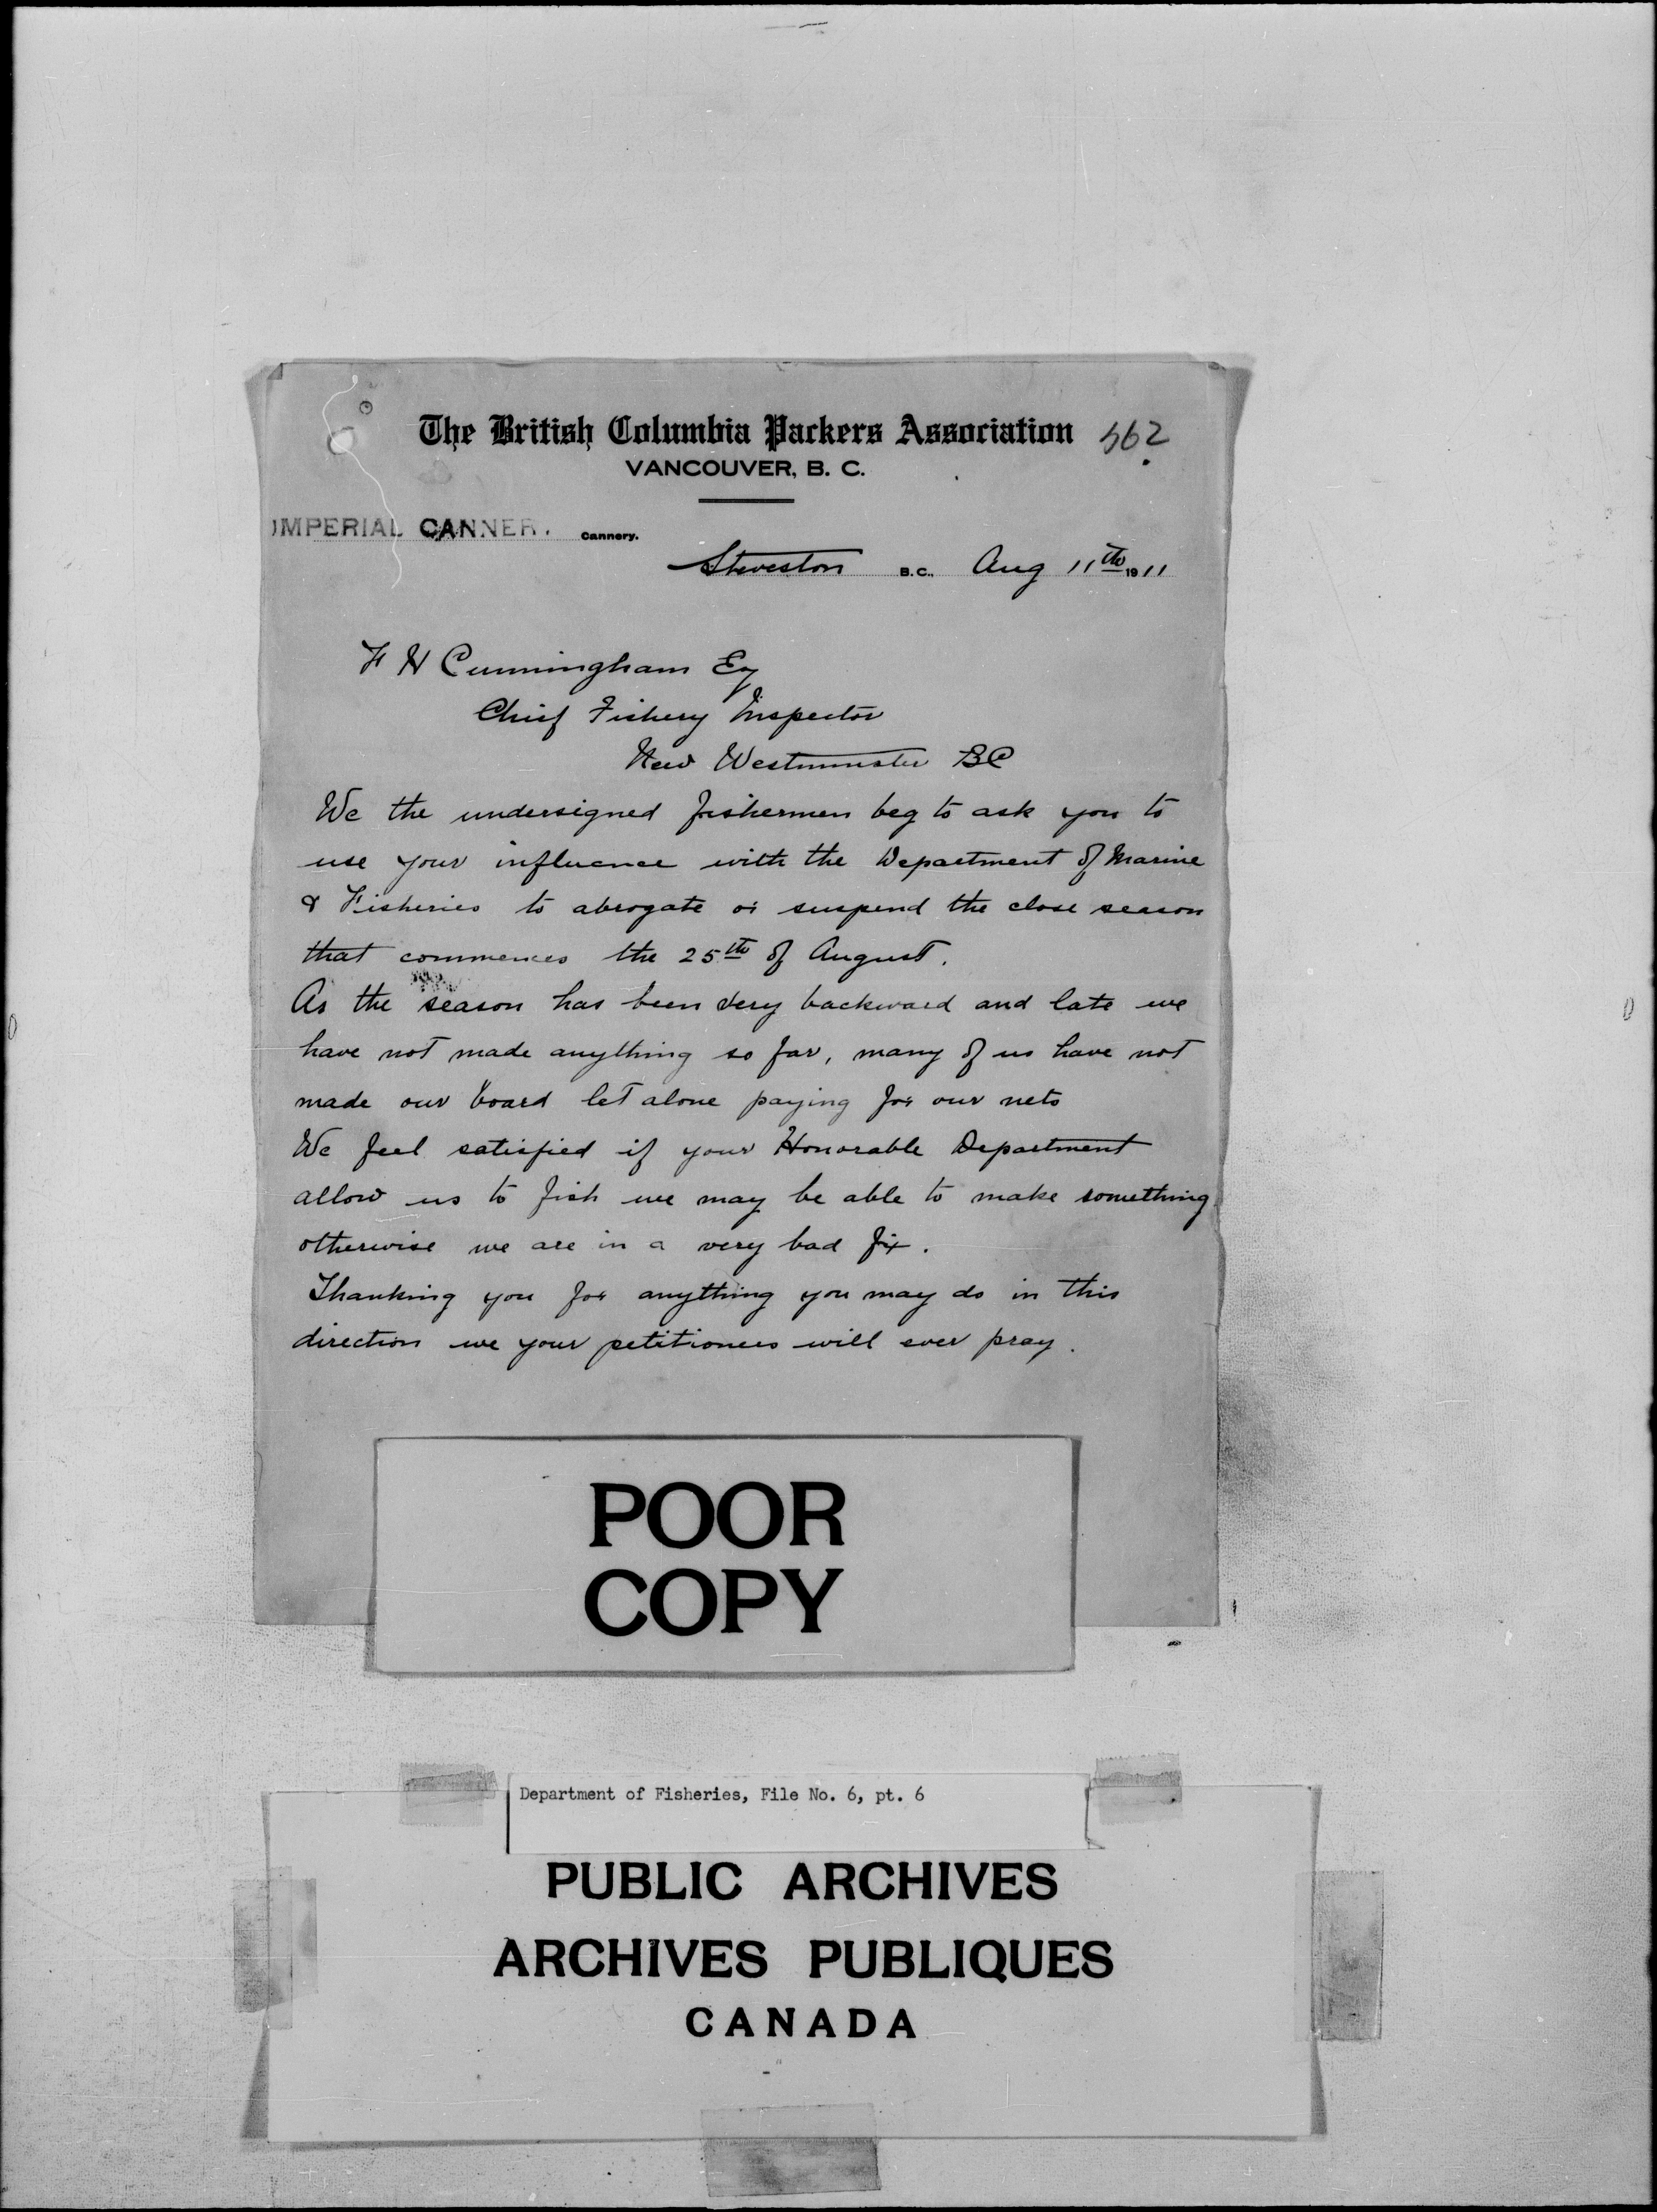 The British Columbia Packers Association 562
VANCOUVER, B. C.
IMPERIAL CANNER. Cannery.
Steveston B.C., Aug 11th 1911
F H Cunningham Esq
Chief Fishery Inspector
New Westminster BC
We the undersigned fishermen beg to ask you to
use your influence with the Department of Marine
& Fisheries to abrogate or suspend the close season
that commences the 25th of August.
As the season has been very backward and late we
have not made anything so far, many of us have not
made our board let alone paying for our nets
We feel satisfied if your Honorable Department
allow us to fish we may be able to make something
otherwise we are in a very bad fix.
Thanking you for anything you may do in this
direction we your petitioners will ever pray.
POOR
COPY
Department of Fisheries, File No. 6, pt. 6
PUBLIC ARCHIVES
ARCHIVES PUBLIQUES
CANADA